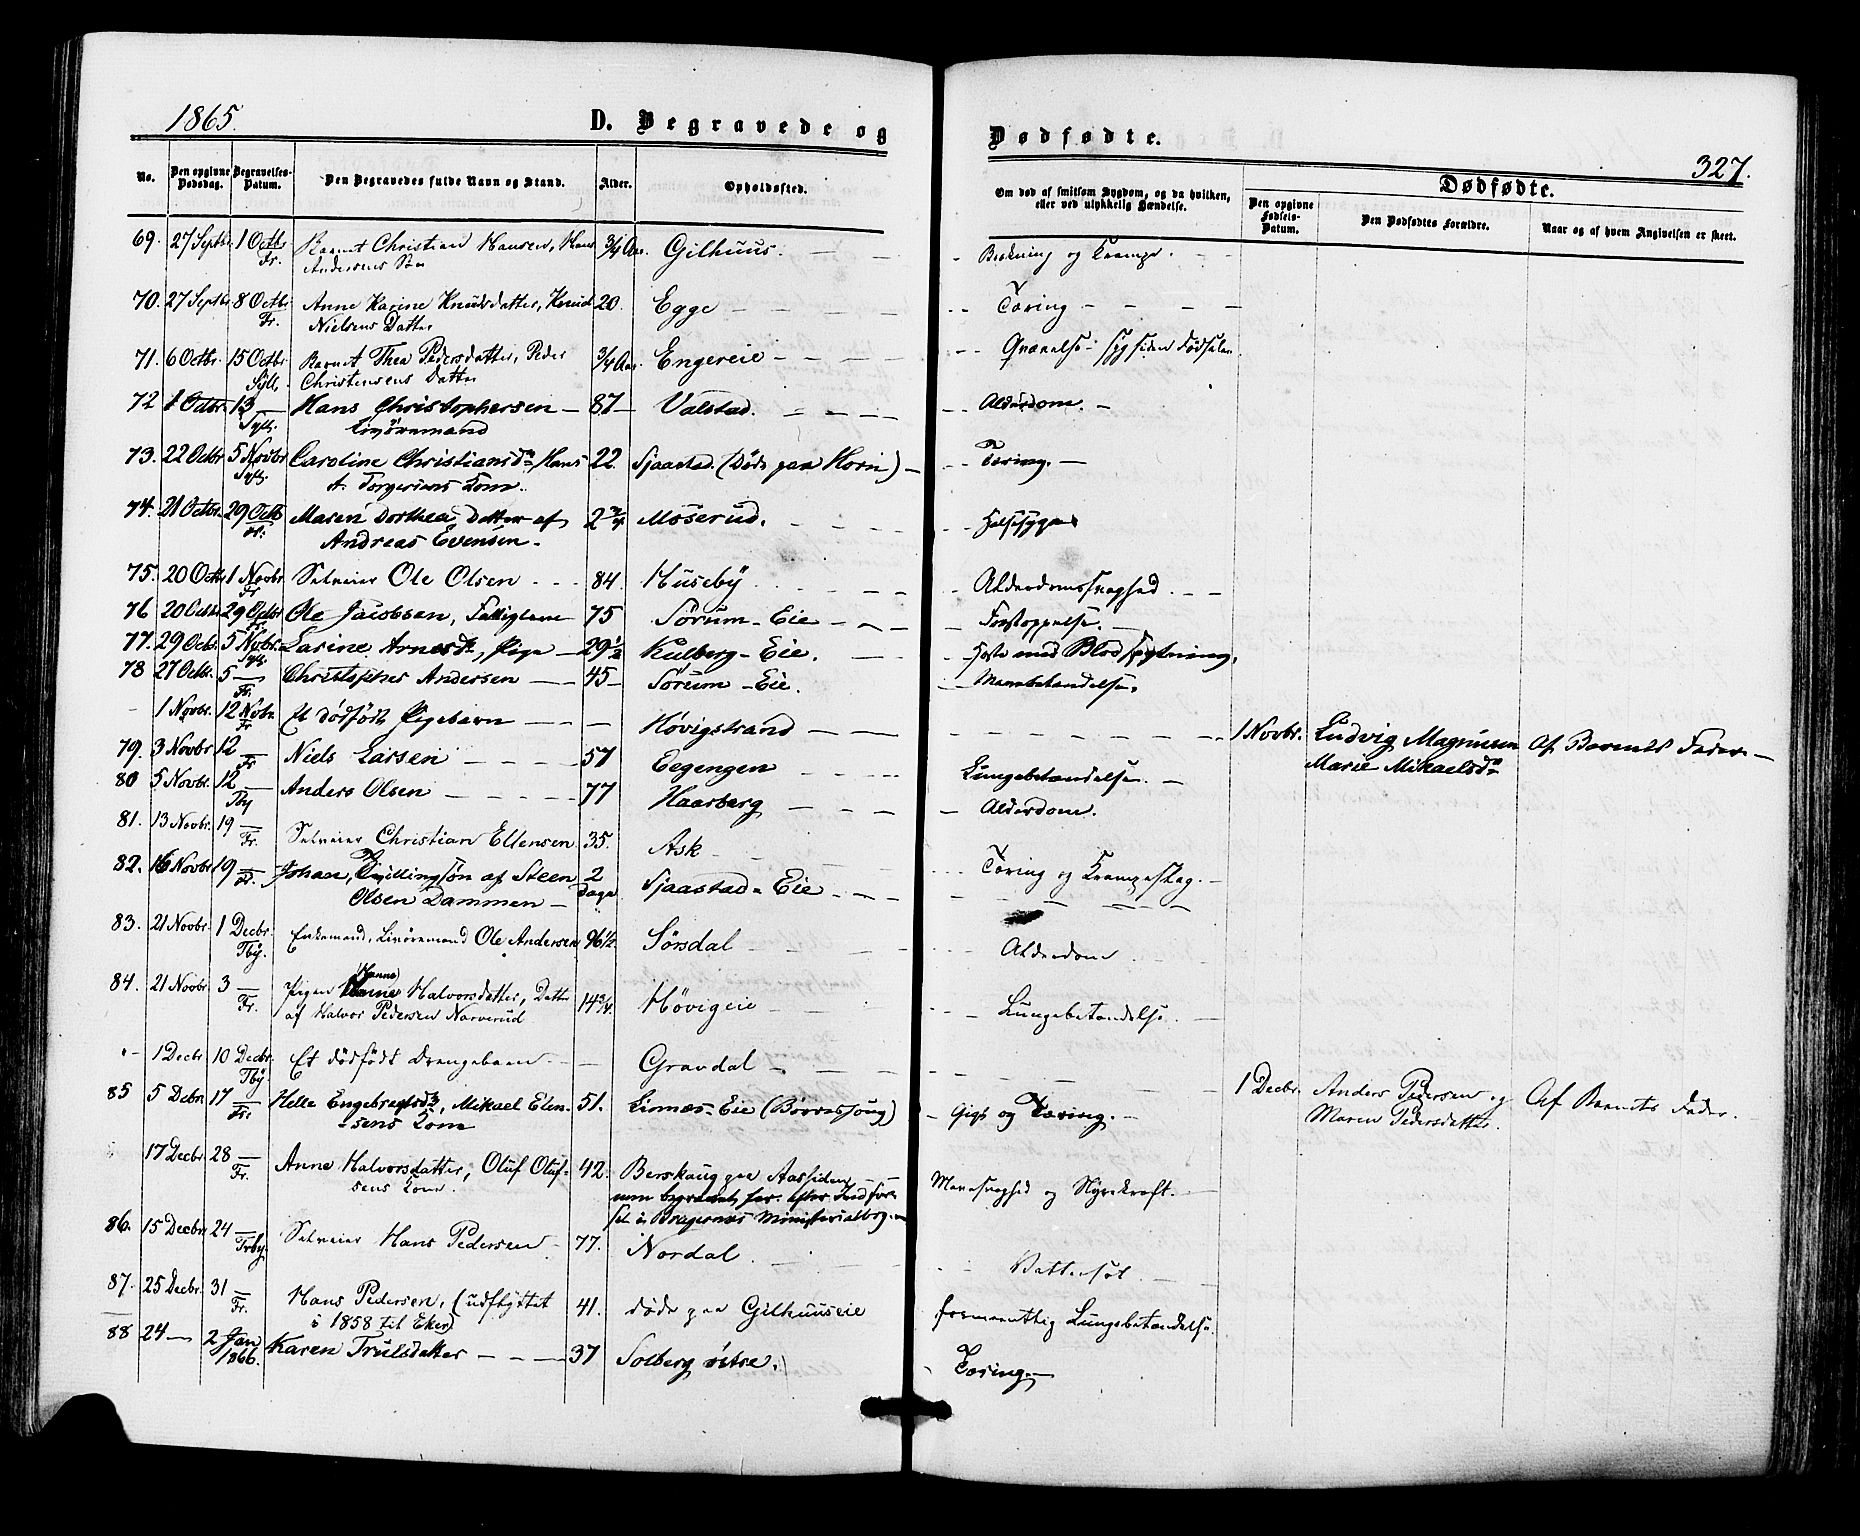 1865.
D. Begravede og
Dødfødte.
327.
No.
Den opgivne Dødsdag.
Begravelses-Datum.
Den Begravedes fulde Navn og Stand.
Alder.
Opholdssted.
Om død af smitsom Sygdom, og da hvilken, eller ved ulykkelig Hændelse.
Dødfødte.
Den opgivne Fødsels-Datum.
Den Dødfødtes Forældre.
Naar og af hvem Angivelsen er skeet.
69. 27 Septbr 1 Octbr Barnet Christian Hansen, Hans 3/4 Aar. Gilhuus. og Krampe.
Fr. Andersens Søn
70. 27 Septbr 8 Octbr Anne Karine Knudsdatter, Knud 20. Egge Tæring
Fr. Nielsens Datter
71. 6 Octbr. 15 Octbr Barnet Thea Pedersdatter, Peder 3/4 Aar. Engereie Qvævelse syg siden Fødselen
Syll. Christensens Datter
72 1 Octbr. 13 — Hans Christophersen — 87 — Valstad. Alderdom. —
Syll.
73. 22 Octbr 5 Novbr Caroline Christiansdr Hans 22. Sjaastad. (Døde paa Horn) — Tæring. —
Syll. A. Torgersens Kone.
74. 21 Octbr. 29 Octb Maren Dorthea, Datter af 2 3/4. Moserud. Halssyge
Fr. Andreas Evensen —
75. 20 Octb 1 Novbr Selveier Ole Olsen 84. Huseby Alderdomssvaghed
Fr
76 20 Octbr 29 Octbr Ole Jacobsen, Fattiglem 75 Sørum-Eie Forstoppelse. —
77. 29 Octb. 5 Novbr. Larine Arnesdr, Pige — 29 1/2 Kulberg-Eie. Hoste med Blodspytning.
Syll.
78 27 Octbr. 5 — Christopher Andersen 45 — Sørum-Eie. Mavebetændelse.
Fr.
1 Novbr. 12 Novbr. Et dødfødt Pigebarn — Høvigstrand 1 Novbr. Ludvig Magnusen Af Barnets Fader —
Fr Marie Mikaelsdr
79. 3 Novbr 12 — Niels Larsen 57 Eegengen Lungebetændelse. —
Fr
80 5 Novbr. 12 — Anders Olsen 77 Haarberg Alderdom.
Tby
81. 13 Novbr. 19 — Selveier Christian Ellensen 35. Ask Tæring og Krampeslag. —
Fr.
82. 16 Novbr 19 — Johan, Tvillingsøn af Steen 2 Dage Sjaastad-Eie
Fr. Olsen Dammen —
83. 21 Novbr. 1 Decbr. Enkemand, Livøremand Ole Andersen 96 1/2. Sørsdal Alderdom
Tby.
84. 21 Novbr 3 — Pigen Hanne Halvorsdatter, Datter 14 3/4. Høvigeie Lungebetændelse
Fr. af Halvor Pedersen Narverud
1 Decbr. 10 Decbr. Et dødfødt Drengebarn — Gravdal 1 Decbr. Anders Pedersen og Af Barnets Fader.
Tby. Maren Pedersdatter.
85 5 Decbr 17 — Helle Engebretsdr, Mikael Ellen- 51. Linnes-Eie (Børressøng) Gigt og Tæring. —
Fr. sens Kone
17 Decbr. 28 — Anne Halvorsdatter, Oluf Oluf- 42. Berskaug paa Aassiden Mavesvaghed og Nyrekræft.
Fr. sens Kone.
som begravet her. efter. Indfør-
set i Bragernes Ministerialbog. —
86. 15 Decbr 24 — Selveier Hans Pedersen 77. Nordal Vattersot.
Tby.
87. 25 Decbr. 31 — Hans Pedersen, (udflyttet 41. døde paa Gilhuuseie formeentlig Lungebetændelse.
Fr. i 1858 til Eker)
88 24 — 2 Jan 1866. Karen Trulsdatter 37 Solberg østre. Tæring. —